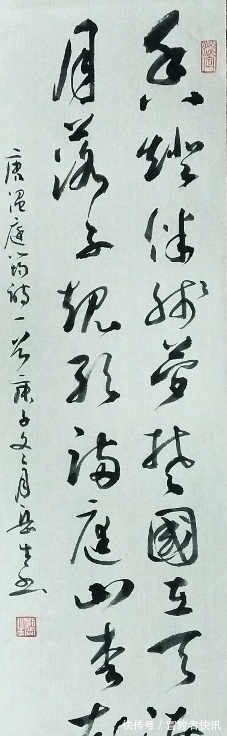 香燈伴殘夢楚國在天涯
月落子規歇滿庭山杏花
唐温庭筠詩一首庚子冬月
快传号/冒险者快讯